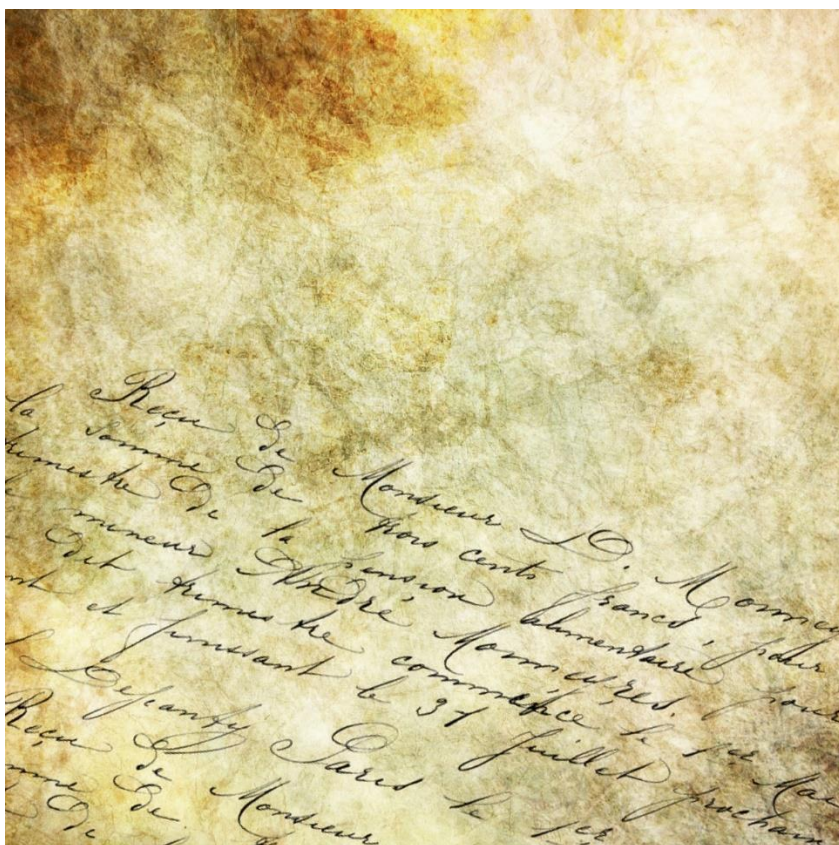 Reçu de Monsieur D.
la somme de trois cents francs, pour
trimestre de la pension alimentaire
mineur André Mounières.
Dit trimestre commence le 1er
et finissant le 31 Juillet prochain
Paris le 1er
Reçu de Monsieur
de
de